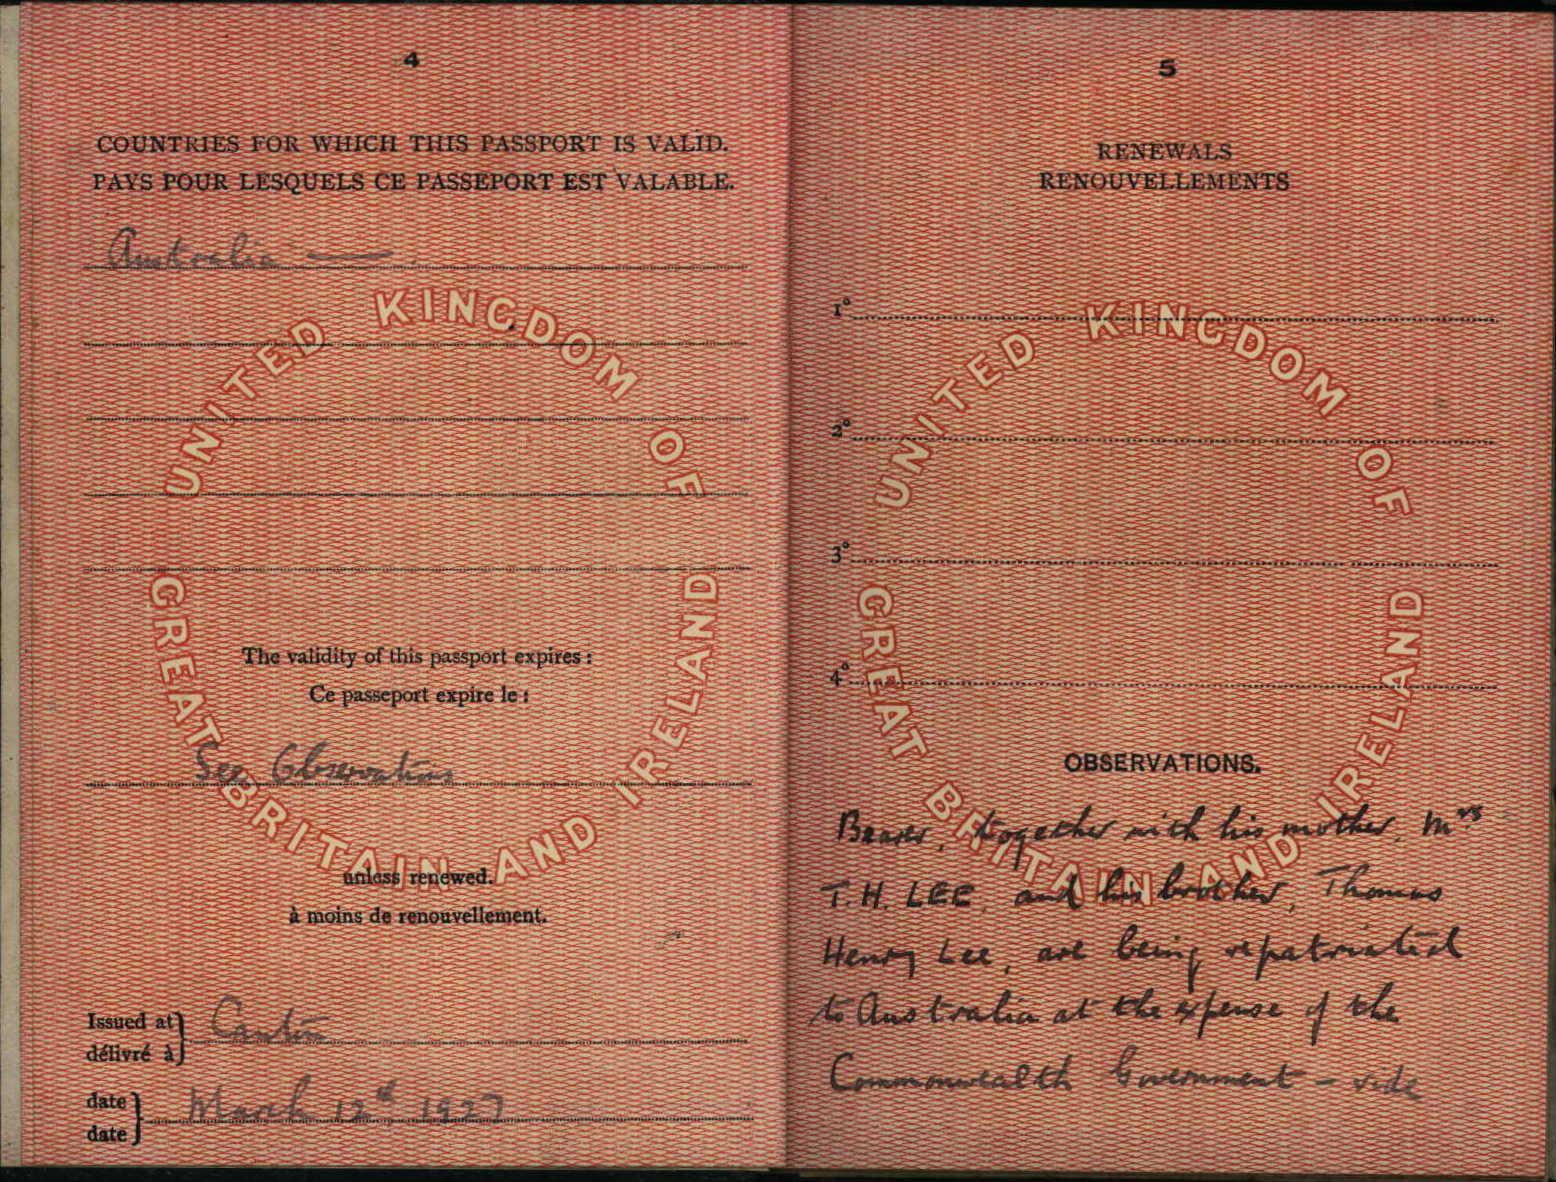 4
COUNTRIES FOR WHICH THIS PASSPORT IS VALID.
PAYS POUR LESQUELS CE PASSEPORT EST VALABLE.
Australia —.
UNITED KINGDOM OF
GREAT BRITAIN AND IRELAND
The validity of this passport expires:
Ce passeport expire le:
See Observations
unless renewed.
à moins de renouvellement.
Issued at
délivré à
Canton
date
date
March 12th 1927
5
RENEWALS
RENOUVELLEMENTS
1°
2°
3°
4°
UNITED KINGDOM OF
GREAT BRITAIN AND IRELAND
OBSERVATIONS.
Bearer, together with his mother, Mrs
T. H. LEE, and his brother, Thomas
Henry Lee, are being repatriated
to Australia at the expense of the
Commonwealth Government – vide